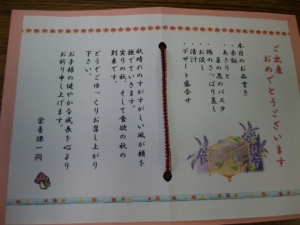 ご出産
おめでとうございます
本日のお品書き
・赤飯
・あさりと
菜の花のパスタ
・鶏のさっぱり蒸し
・お浸し
・漬け
・デザート盛合せ
秋晴れのすがすがしい風が頬を
撫でていきます。
実りの秋、そして食欲の秋の
到来です。
どうぞごゆっくりお召し上がり
下さい。
お子様の健やかな成長を心より
お祈り申し上げます。
栄養課一同